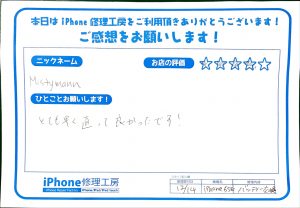 本日は iPhone 修理工房をご利用頂きありがとうございます！
ご感想をお願いします！
ニックネーム
お店の評価
☆☆☆☆☆
ひとことお願いします！
とても早く直って良かったです！
iPhone修理工房
修理内容
12/14 iPhone6S